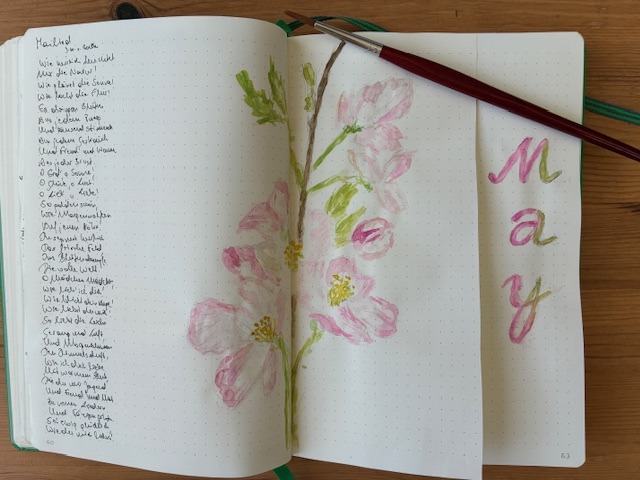 Mailied
J. W. v. Goethe
Wie herrlich leuchtet
Mir die Natur!
Wie glänzt die Sonne!
Wie lacht die Flur!
Es dringen Blüten
Aus jedem Zweig
Und tausend Stimmen
Aus dem Gesträuch
Und Freud und Wonne
Aus jeder Brust.
O Erd, o Sonne!
O Glück, o Lust!
O Lieb, o Liebe!
So golden schön,
Wie Morgenwolken
Auf jenen Höhn!
Du segnest herrlich
Das frische Feld
Im Blütendampfe
Die volle Welt.
O Mädchen, Mädchen
Wie lieb ich dich!
Wie blickt dein Auge!
Wie liebst du mich!
So liebt die Lerche
Gesang und Luft,
Und Morgenblumen
Den Himmelsduft,
Wie ich dich liebe
Mit warmem Blut
Die du mir Jugend
Und Freud und Mut
Zu neuen Liedern
Und Tänzen gibst
Sei ewig glücklich
Wie du mich liebst!
60
May
63